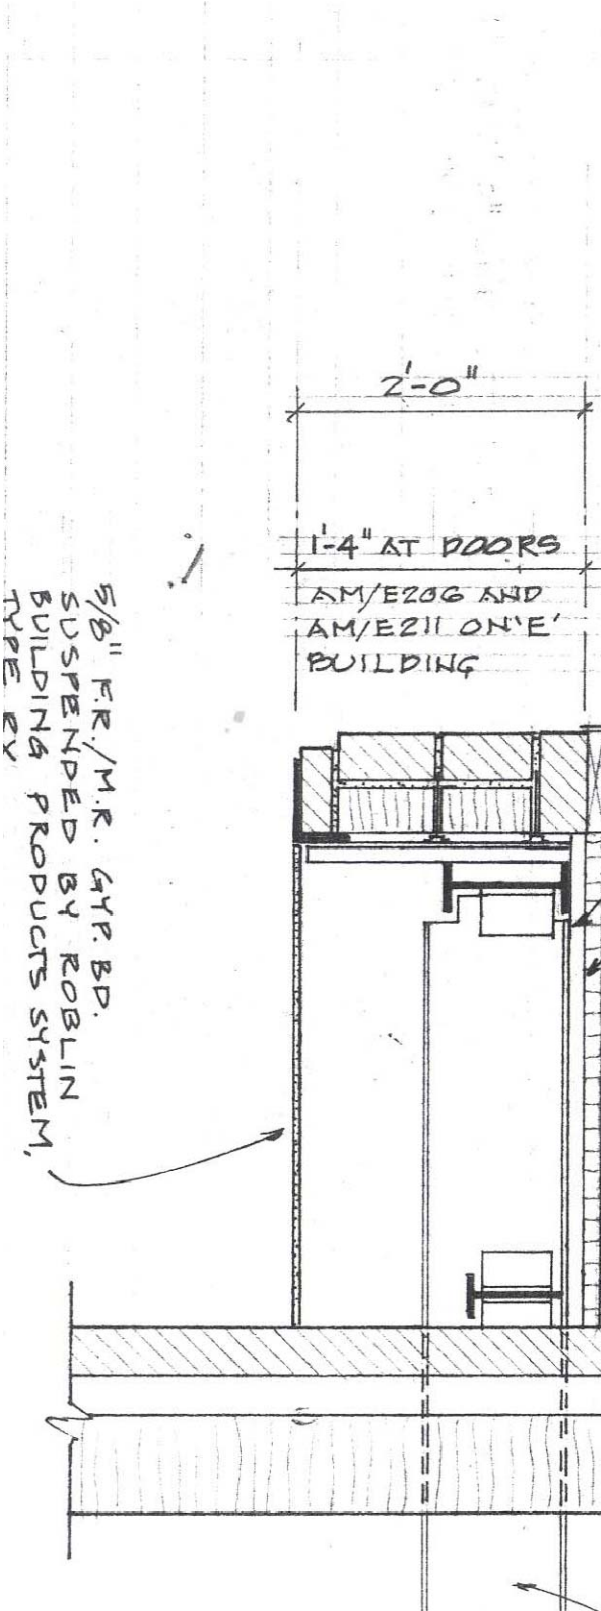 2'-0"
1'-4" AT DOORS
AM/E206 AND
AM/E211 ON 'E'
BUILDING
5/8" F.R./M.R. GYP. BD.
SUSPENDED BY ROBLIN
BUILDING PRODUCTS SYSTEM,
TYPE